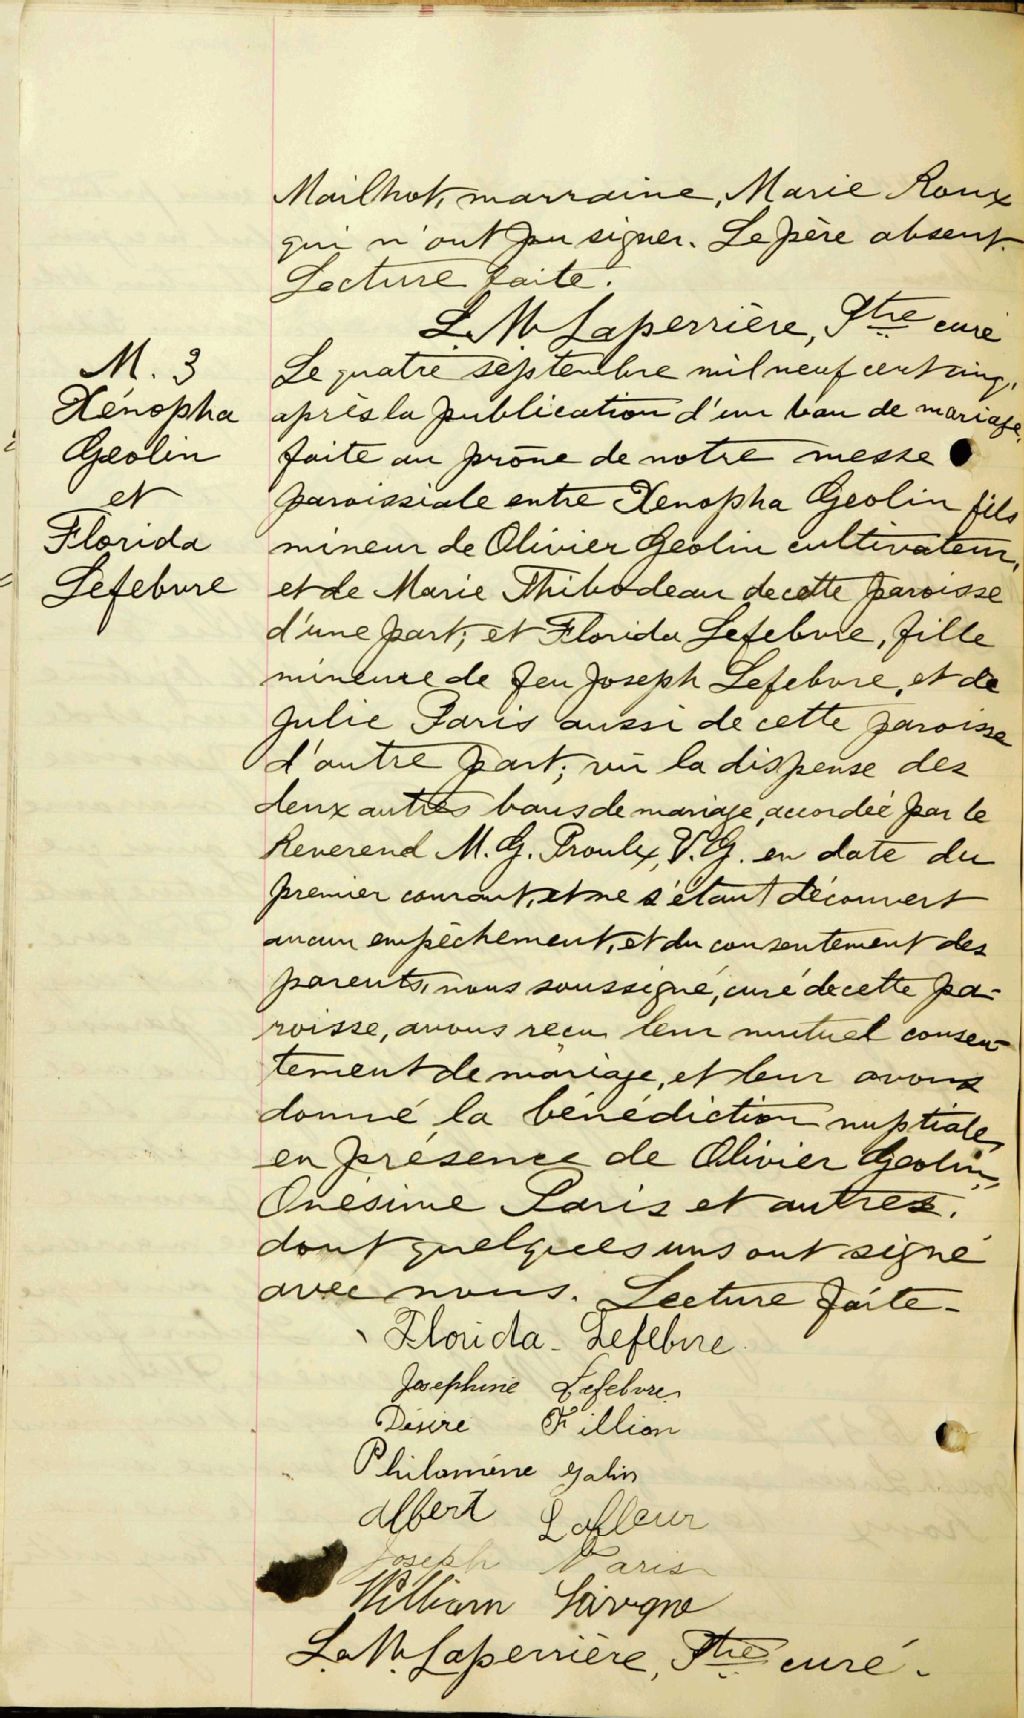 Mailhot, marraine, Marie Roux
qui n'ont pu signer. Le père absent.
Lecture faite.
L. M. Laperrière, Ptre curé
M. 3
Xénopha
Geolin
et
Florida
Lefebvre
Le quatre septembre mil neuf cent cinq,
après la publication d'un ban de mariage,
faite au prône de notre messe
paroissiale entre Xenopha Geolin fils
mineur de Olivier Geolin cultivateur,
et de Marie Thibodeau de cette paroisse
d'une part; et Florida Lefebvre, fille
mineure de feu Joseph Lefebvre, et de
Julie Paris aussi de cette paroisse
d'autre part; vû la dispense des
deux autres bans de mariage, accordée par le
Reverend M. G. Proulx, V. G. en date du
premier courant, et ne s'étant découvert
aucun empêchement, et du consentement des
parents, nous soussigné, curé de cette pa-
roisse, avons recu leur mutuel consen-
tement de mariage, et leur avons
donné la bénédiction nuptiale,
en présence de Olivier Geolin,
Onésime Paris et autres,
dont quelques uns ont signé
avec nous. Lecture faite-
Florida Lefebvre
Josephine Lefebvre
Désire Fillion
Philomène Galin
Albert Lafleur
Joseph Paris
William Lavigne
L. M. Laperrière, Ptre curé.